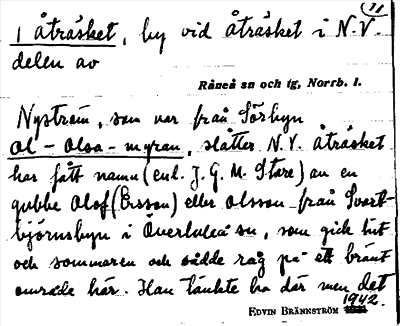 11
1 Åträsket, by vid Åträsket i N.V.
delen av
Råneå sn och tg, Norrb. l.
Nyström, som var från Sörbyn
Ol-Olsa-myran, slåtter N.V. Åträsket
har fått namn (enl. J. G. M. Stare) av en
gubbe Olof (Ersson) eller Olsson från Svart-
björnsbyn i Överluleå sn, som gick hit
och sommaren och sådde råg på ett bränt
område här. Han tänkte bo där men det
EDVIN BRÄNNSTRÖM 1942.